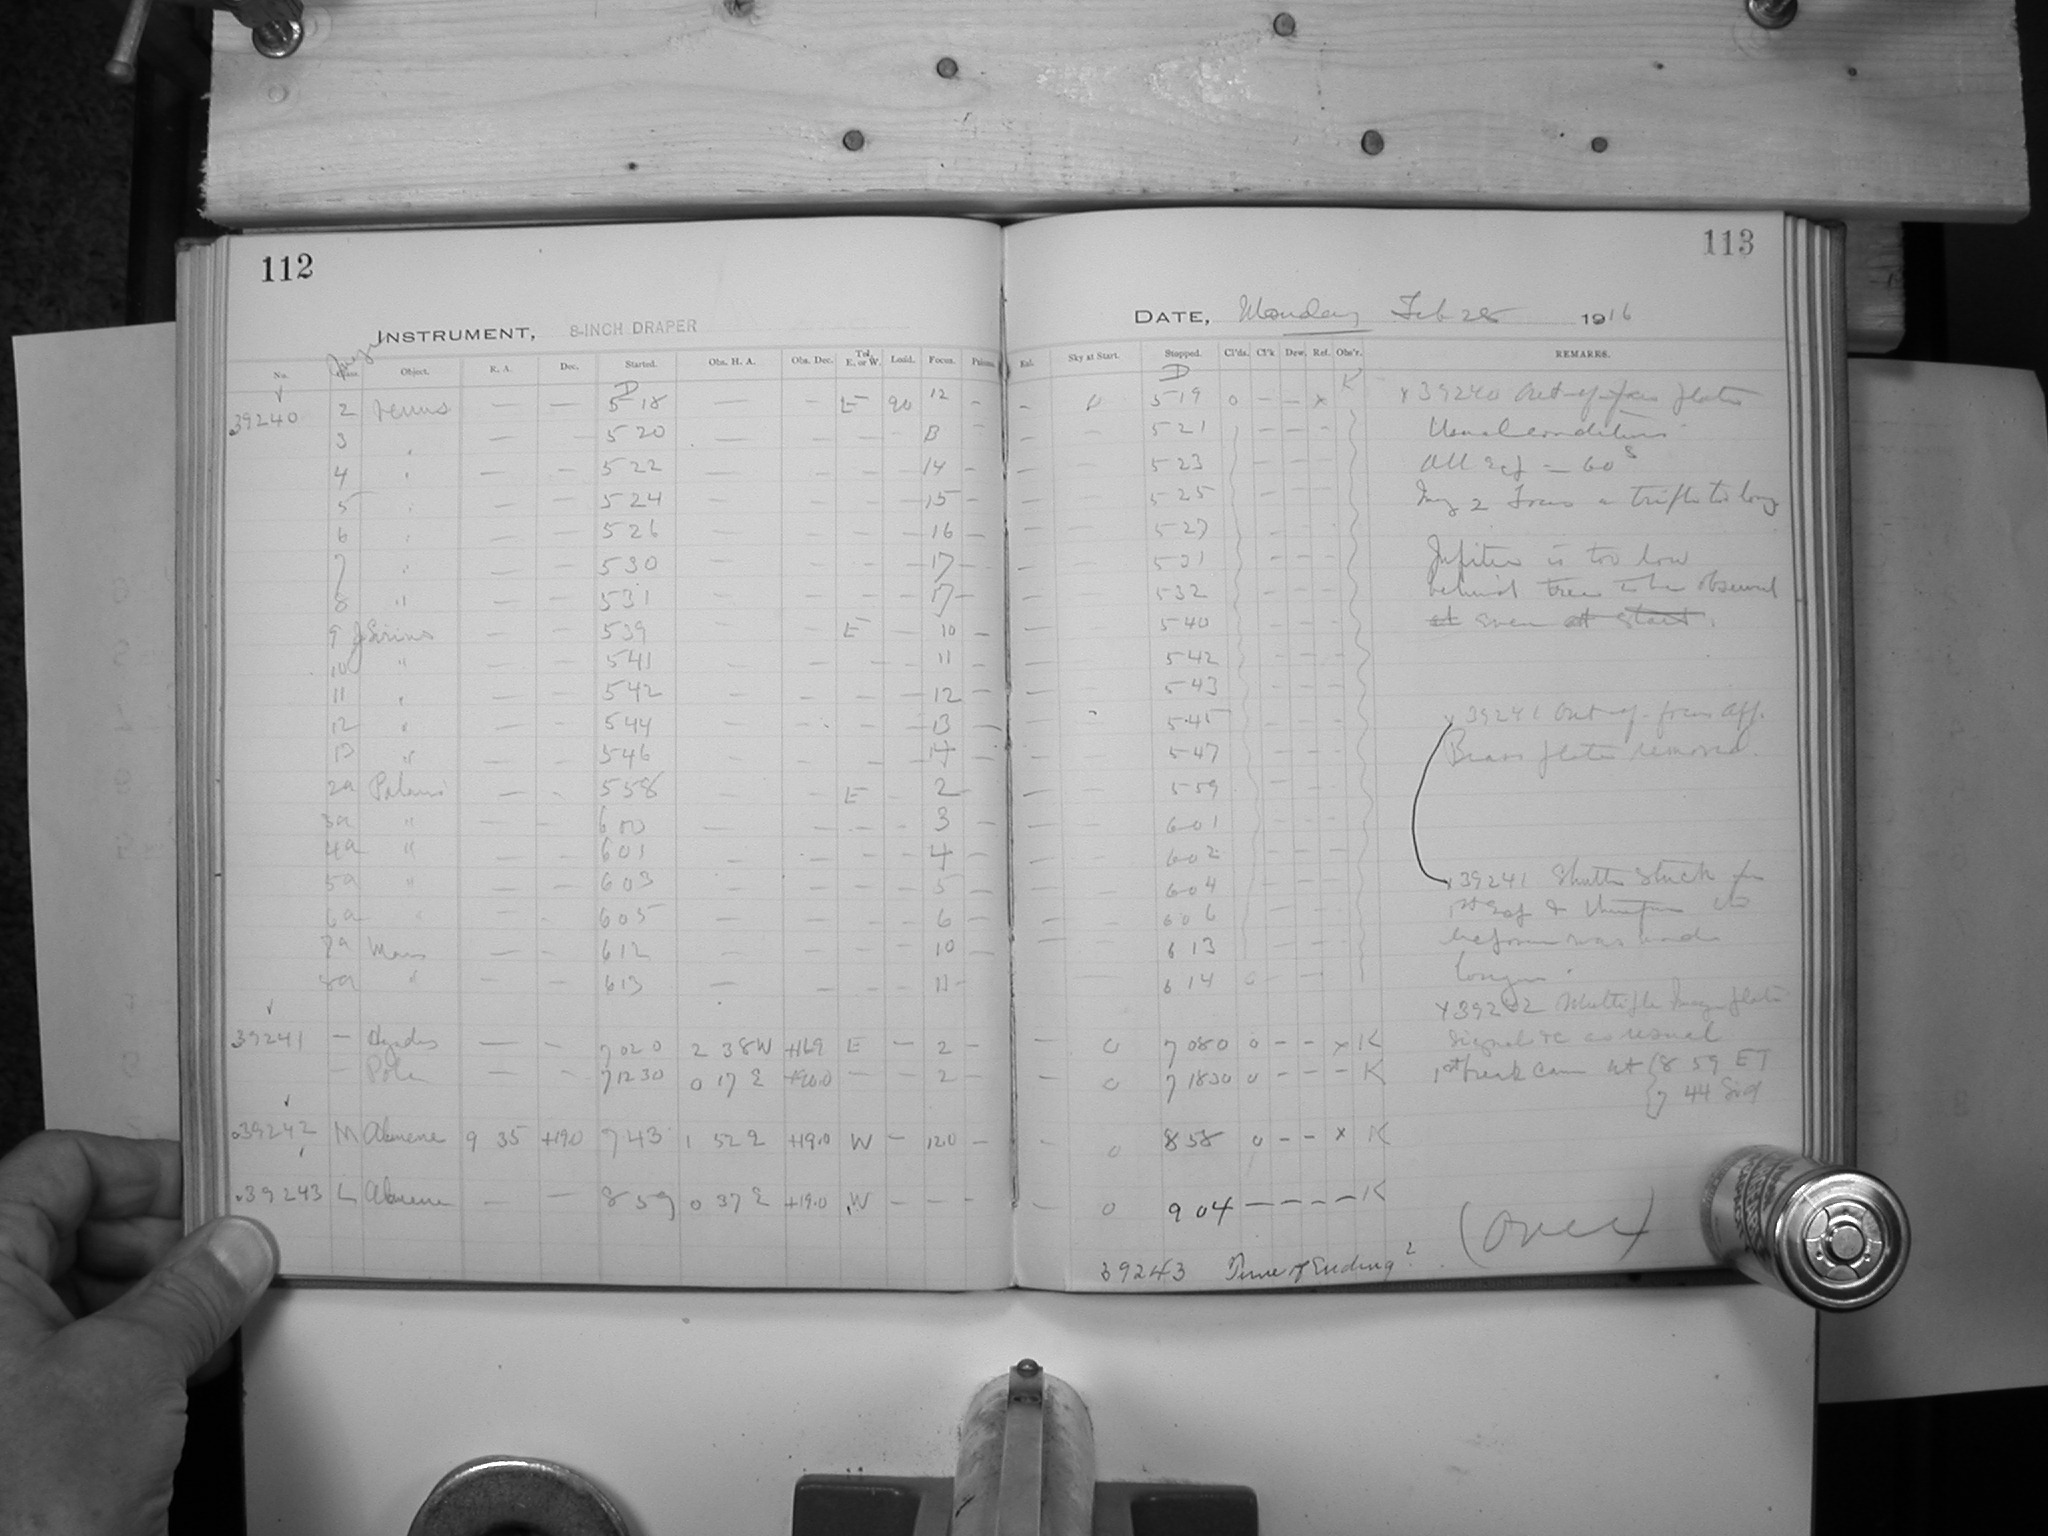 112
INSTRUMENT, 8-INCH DRAPER
No. Class. Object. R. A. Dec. Started. Obs. H. A. Obs. Dec. Tel. E. or W. Loaid. Focus.
39240 2 Venus — — 5 18 — — E 90 12 -
3 " — — 5 20 — — 13
4 " — — 5 22 — — — — 14 -
5 " — — 5 24 — — — — 15 -
6 " — — 5 26 — — — — 16 -
7 " — — 5 30 — — — — 17 -
8 " — — 5 31 — — — — 17 -
9 Sirius — — 5 39 — — E 10 -
10 " — — 5 41 — — — — 11 -
11 " — — 5 42 — — — — 12 -
12 " — — 5 44 — — — — 13 -
13 " — — 5 46 — — — — 14 -
2a Polaris — - 5 58 — — E — 2 -
3a " — — 6 00 — — — — 3 -
4a " — — 6 01 — — — — 4 -
5a " — — 6 03 — — — — 5 -
6a " — - 6 05 — — — — 6 -
7a Mars — — 6 12 — — — — 10 -
8a " — — 6 13 — — — — 11 -
39241 — Hyades — — 7 02 0 2 38 W +16.9 E — 2 -
— Pole — — 7 12 30 0 17 E +90.0 — — 2 -
39242 M Alumene 9 35 +19.0 7 43 1 52 E +19.0 W — 12.0 -
39243 L Alumene — — 8 59 0 37 E +19.0 W — — -
113
DATE, Monday Feb 28 1916
Sky at Start. Stopped. Cl'ds. Cl'k Dew. Ref. Obs'r. REMARKS.
- 0 5 19 0 - - x K
5 21
5 23
5 25
5 27
5 31
5 32
5 40
5 42
5 43
5 45
5 47
5 59
6 01
6 02
6 04
6 06
6 13
6 14 0
- 0 7 08 0 0 - - x K
0 7 18 30 0 - - - K
0 8 58 0 - - x K
- 0 9 04 - - - - K
x 39240 Out-of-focus plate
Usual conditions
All exp = 60s
Img 2 Focus a trifle too long
Jupiter is too low
behind trees to be observed
at even at start.
x 39241 Out-of-focus app.
Brass plate removed.
x 39241 Shutter stuck for
1st Exp &
before was made
longer.
x 39242 Multiple Image plate
Signal &c as usual
1st break came at { 8 59 ET
{ 7 44 Sid
(Over)
39243 Time of Ending?